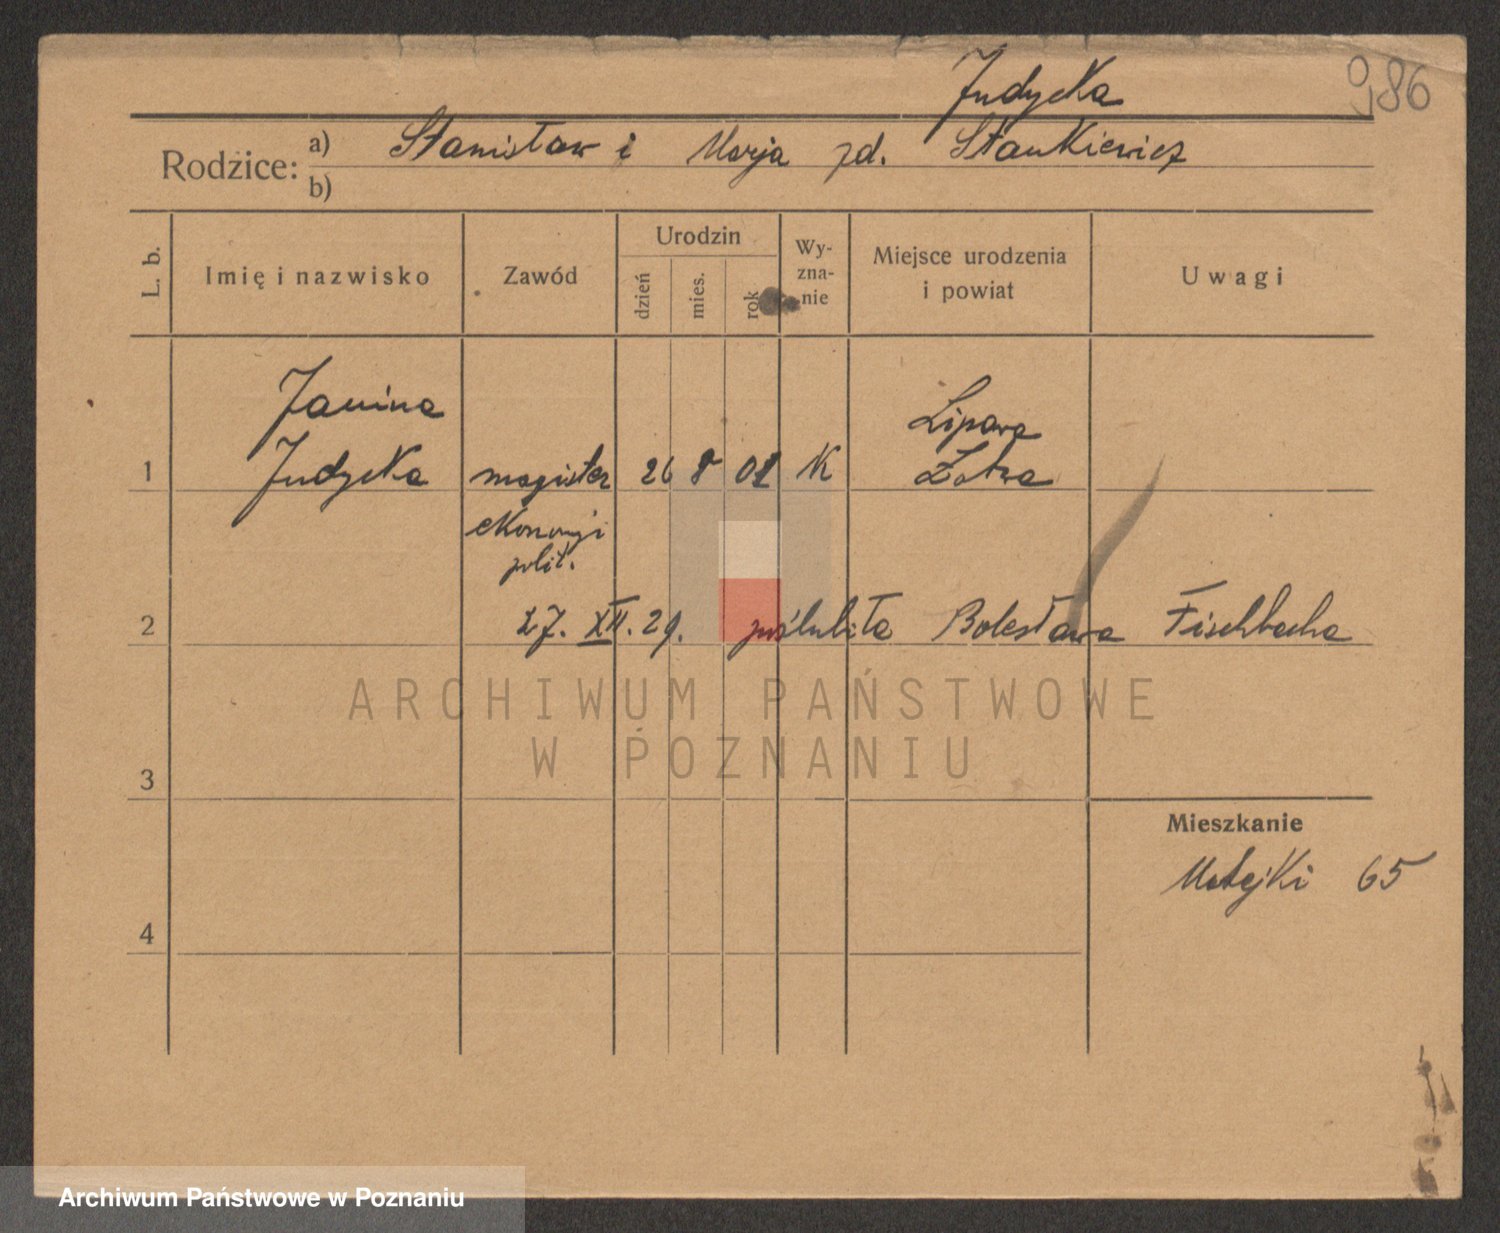 Judycka
986
Rodzice: a) Stanisław i Marja zd. Stankiewicz
b)
L. b.
Imię i nazwisko
Zawód
Urodzin
dzień
mies.
rok
Wy-
zna-
nie
Miejsce urodzenia
i powiat
Uwagi
Janina
Lipawa
1 Judycka magister 26 8 01 K Łotwa
ekonomji
polit.
2 27. XII. 29. poślubiła Bolesława Fischbacha
ARCHIWUM PAŃSTWOWE
W POZNANIU
3
Mieszkanie
Matejki 65
4
Archiwum Państwowe w Poznaniu